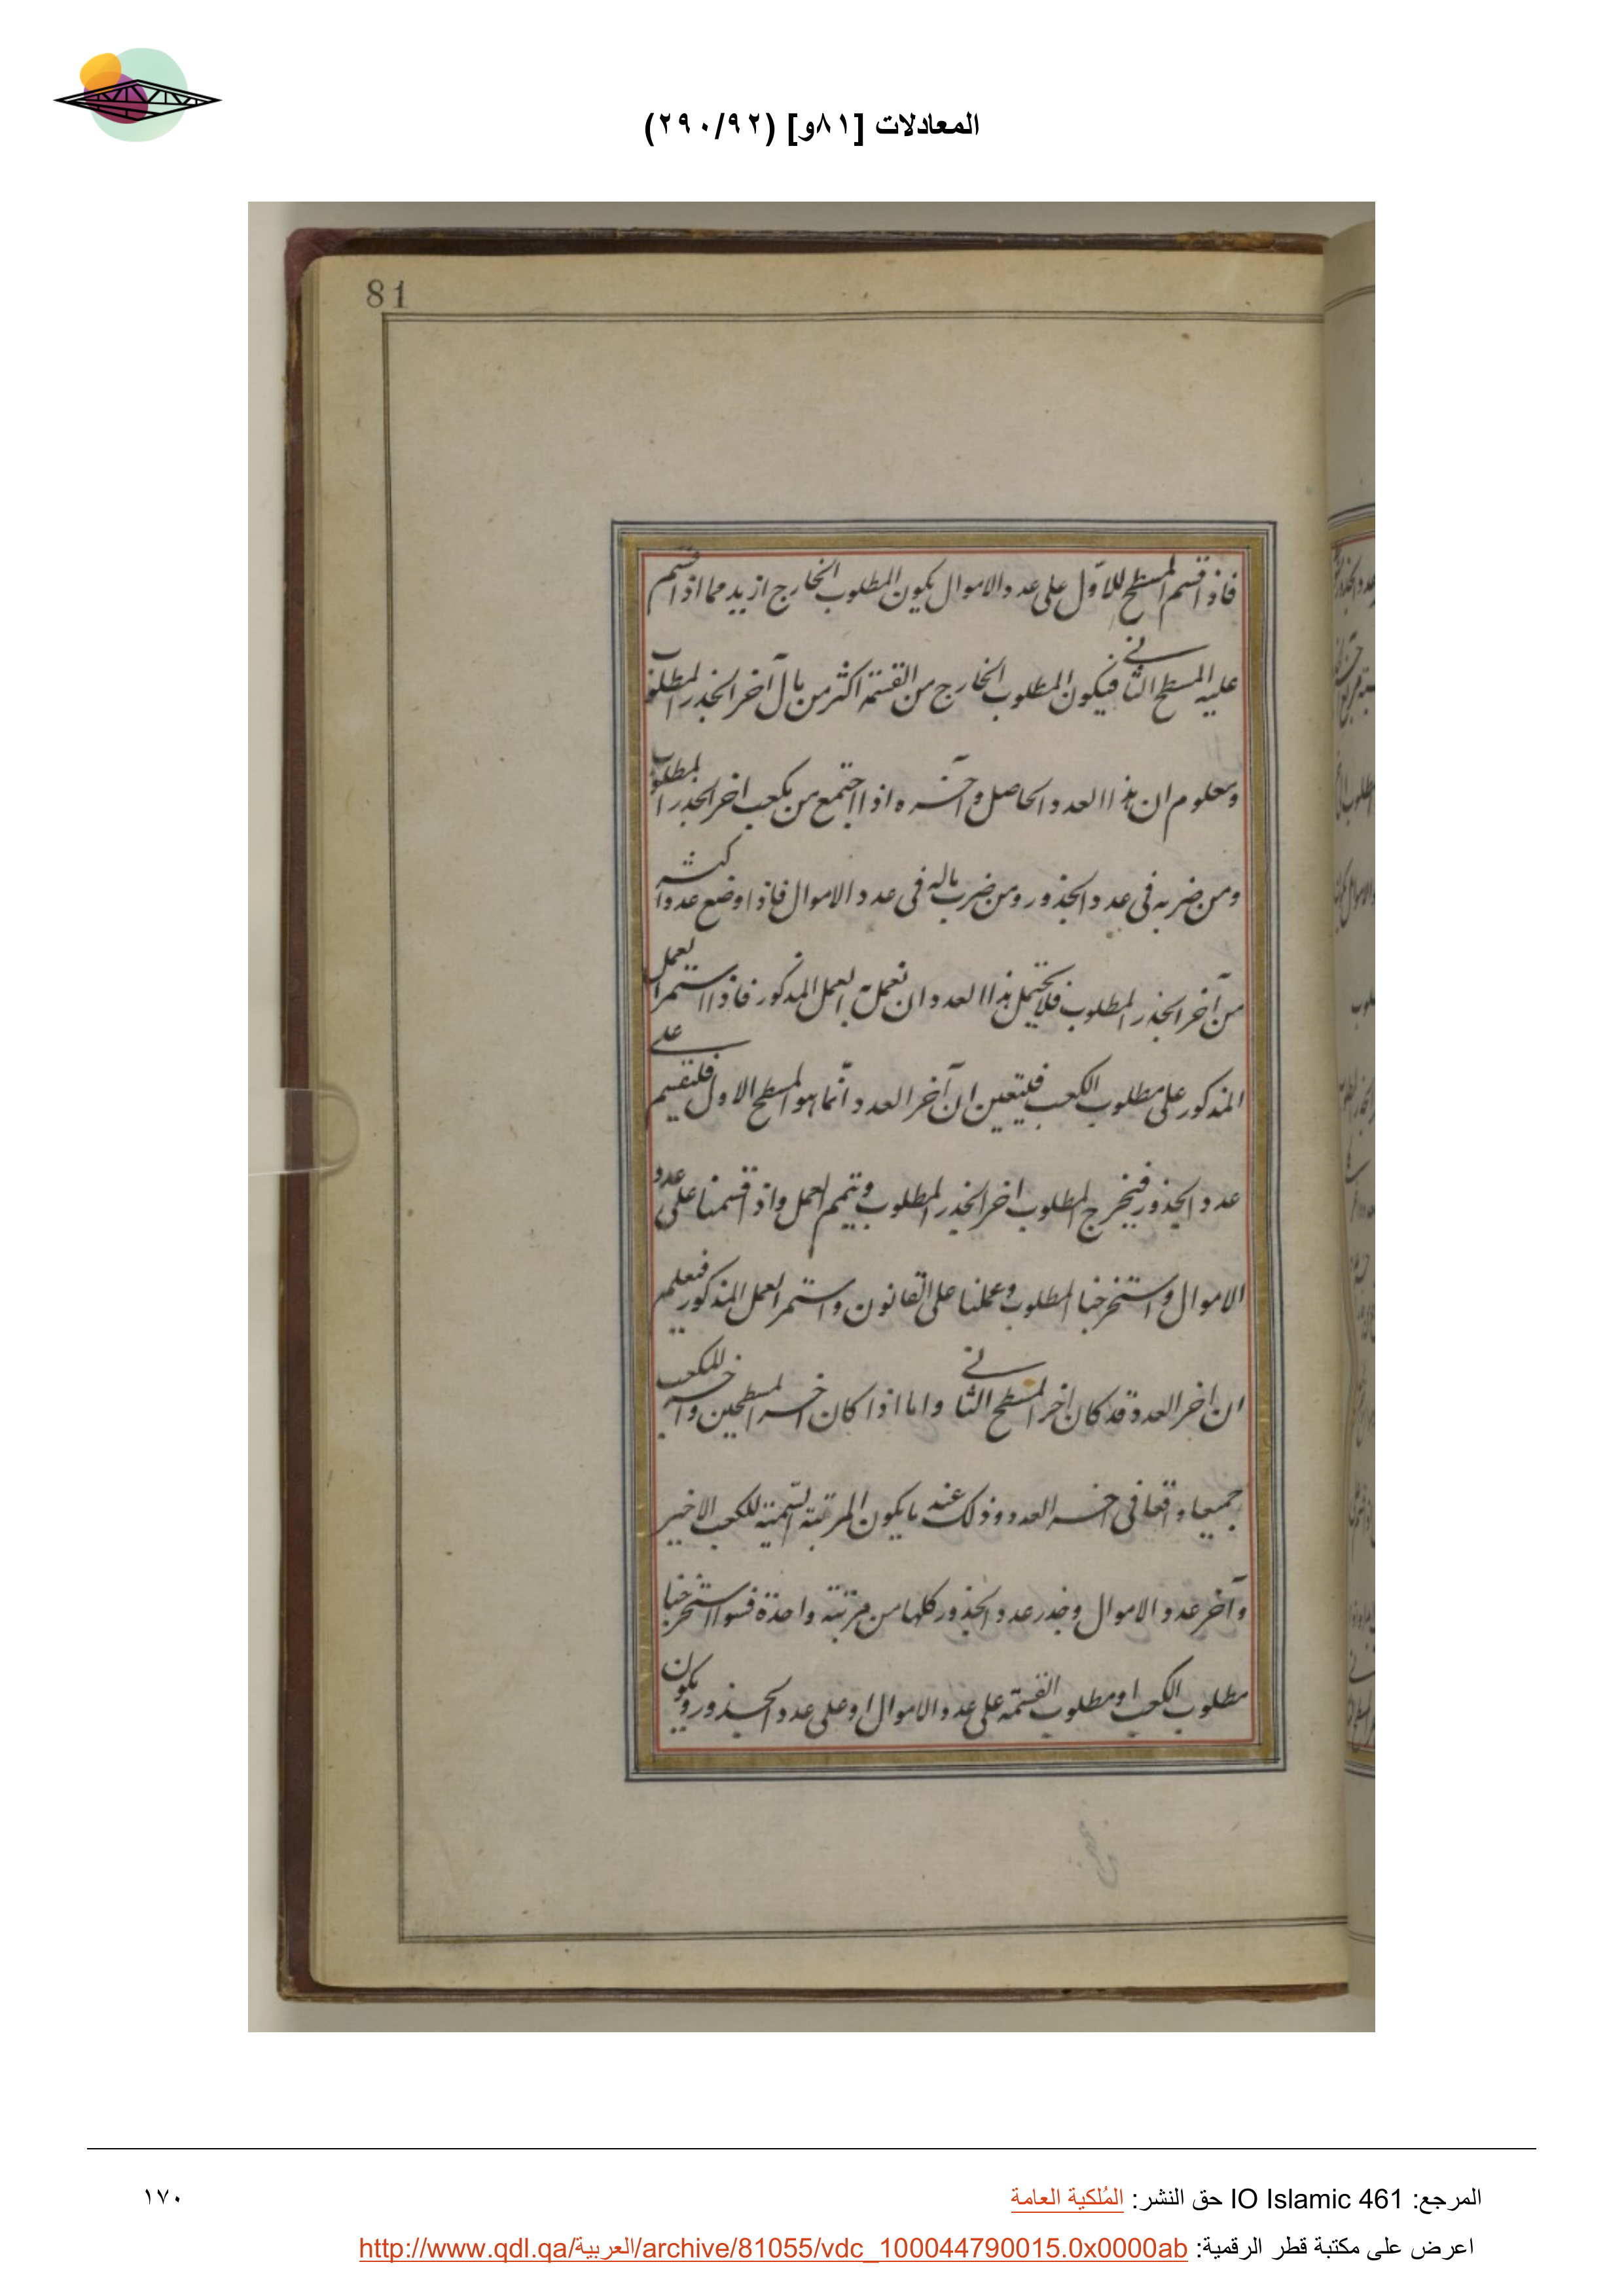 المعادلات [٨١و] (٢٩٠/٩٢)
81
فاذا قسم المسطح للاوّل على عدد الاموال يكون المطلوب الخارج ازيد مما اذا قسم
عليه المسطح الثانے فيكون المطلوب الخارج من القسمة اكثر من مال آخر الجذر المطلوب
ومعلوم ان هذا العدد الحاصل وآخره اذا اجتمع من مكعب اخر الجذر المطلوب
ومن ضربه فى عدد الجذور ومن ضرب ماله فى عدد الاموال فاذا وضع عدد اكثر
من آخر الجذر المطلوب فلا يحتمل هذا العدد ان نعمل به العمل المذكور فاذا استمر العمل
المذكور على مطلوب الكعب فليتعين ان آخر العدد انّما هو المسطح الاول فلنقسم علے
عدد الجذور فيخرج المطلوب اخر الجذر المطلوب ويتمم العمل واذا قسمنا على عدد
الاموال واستخرجنا المطلوب وعملنا على القانون واستمر العمل المذكور فيعلم
ان اخر العدد قد كان اخر المسطح الثانے واما اذا كان اخر المسطحين وآخر المكعب
جميعا واقعا فى اخر العدد وذلك عند ما يكون المرتبة السّمية للكعب الاخير
وآخر عدد الاموال وجذر عدد الجذور كلها من مرتبة واحدة فسوا استخرجنا
مطلوب الكعب او مطلوب القسمة على عدد الاموال او على عدد الجذور ويكون
المرجع: IO Islamic 461 حق النشر: المُلكية العامة
١٧٠
اعرض على مكتبة قطر الرقمية: http://www.qdl.qa/العربية/archive/81055/vdc_100044790015.0x0000ab